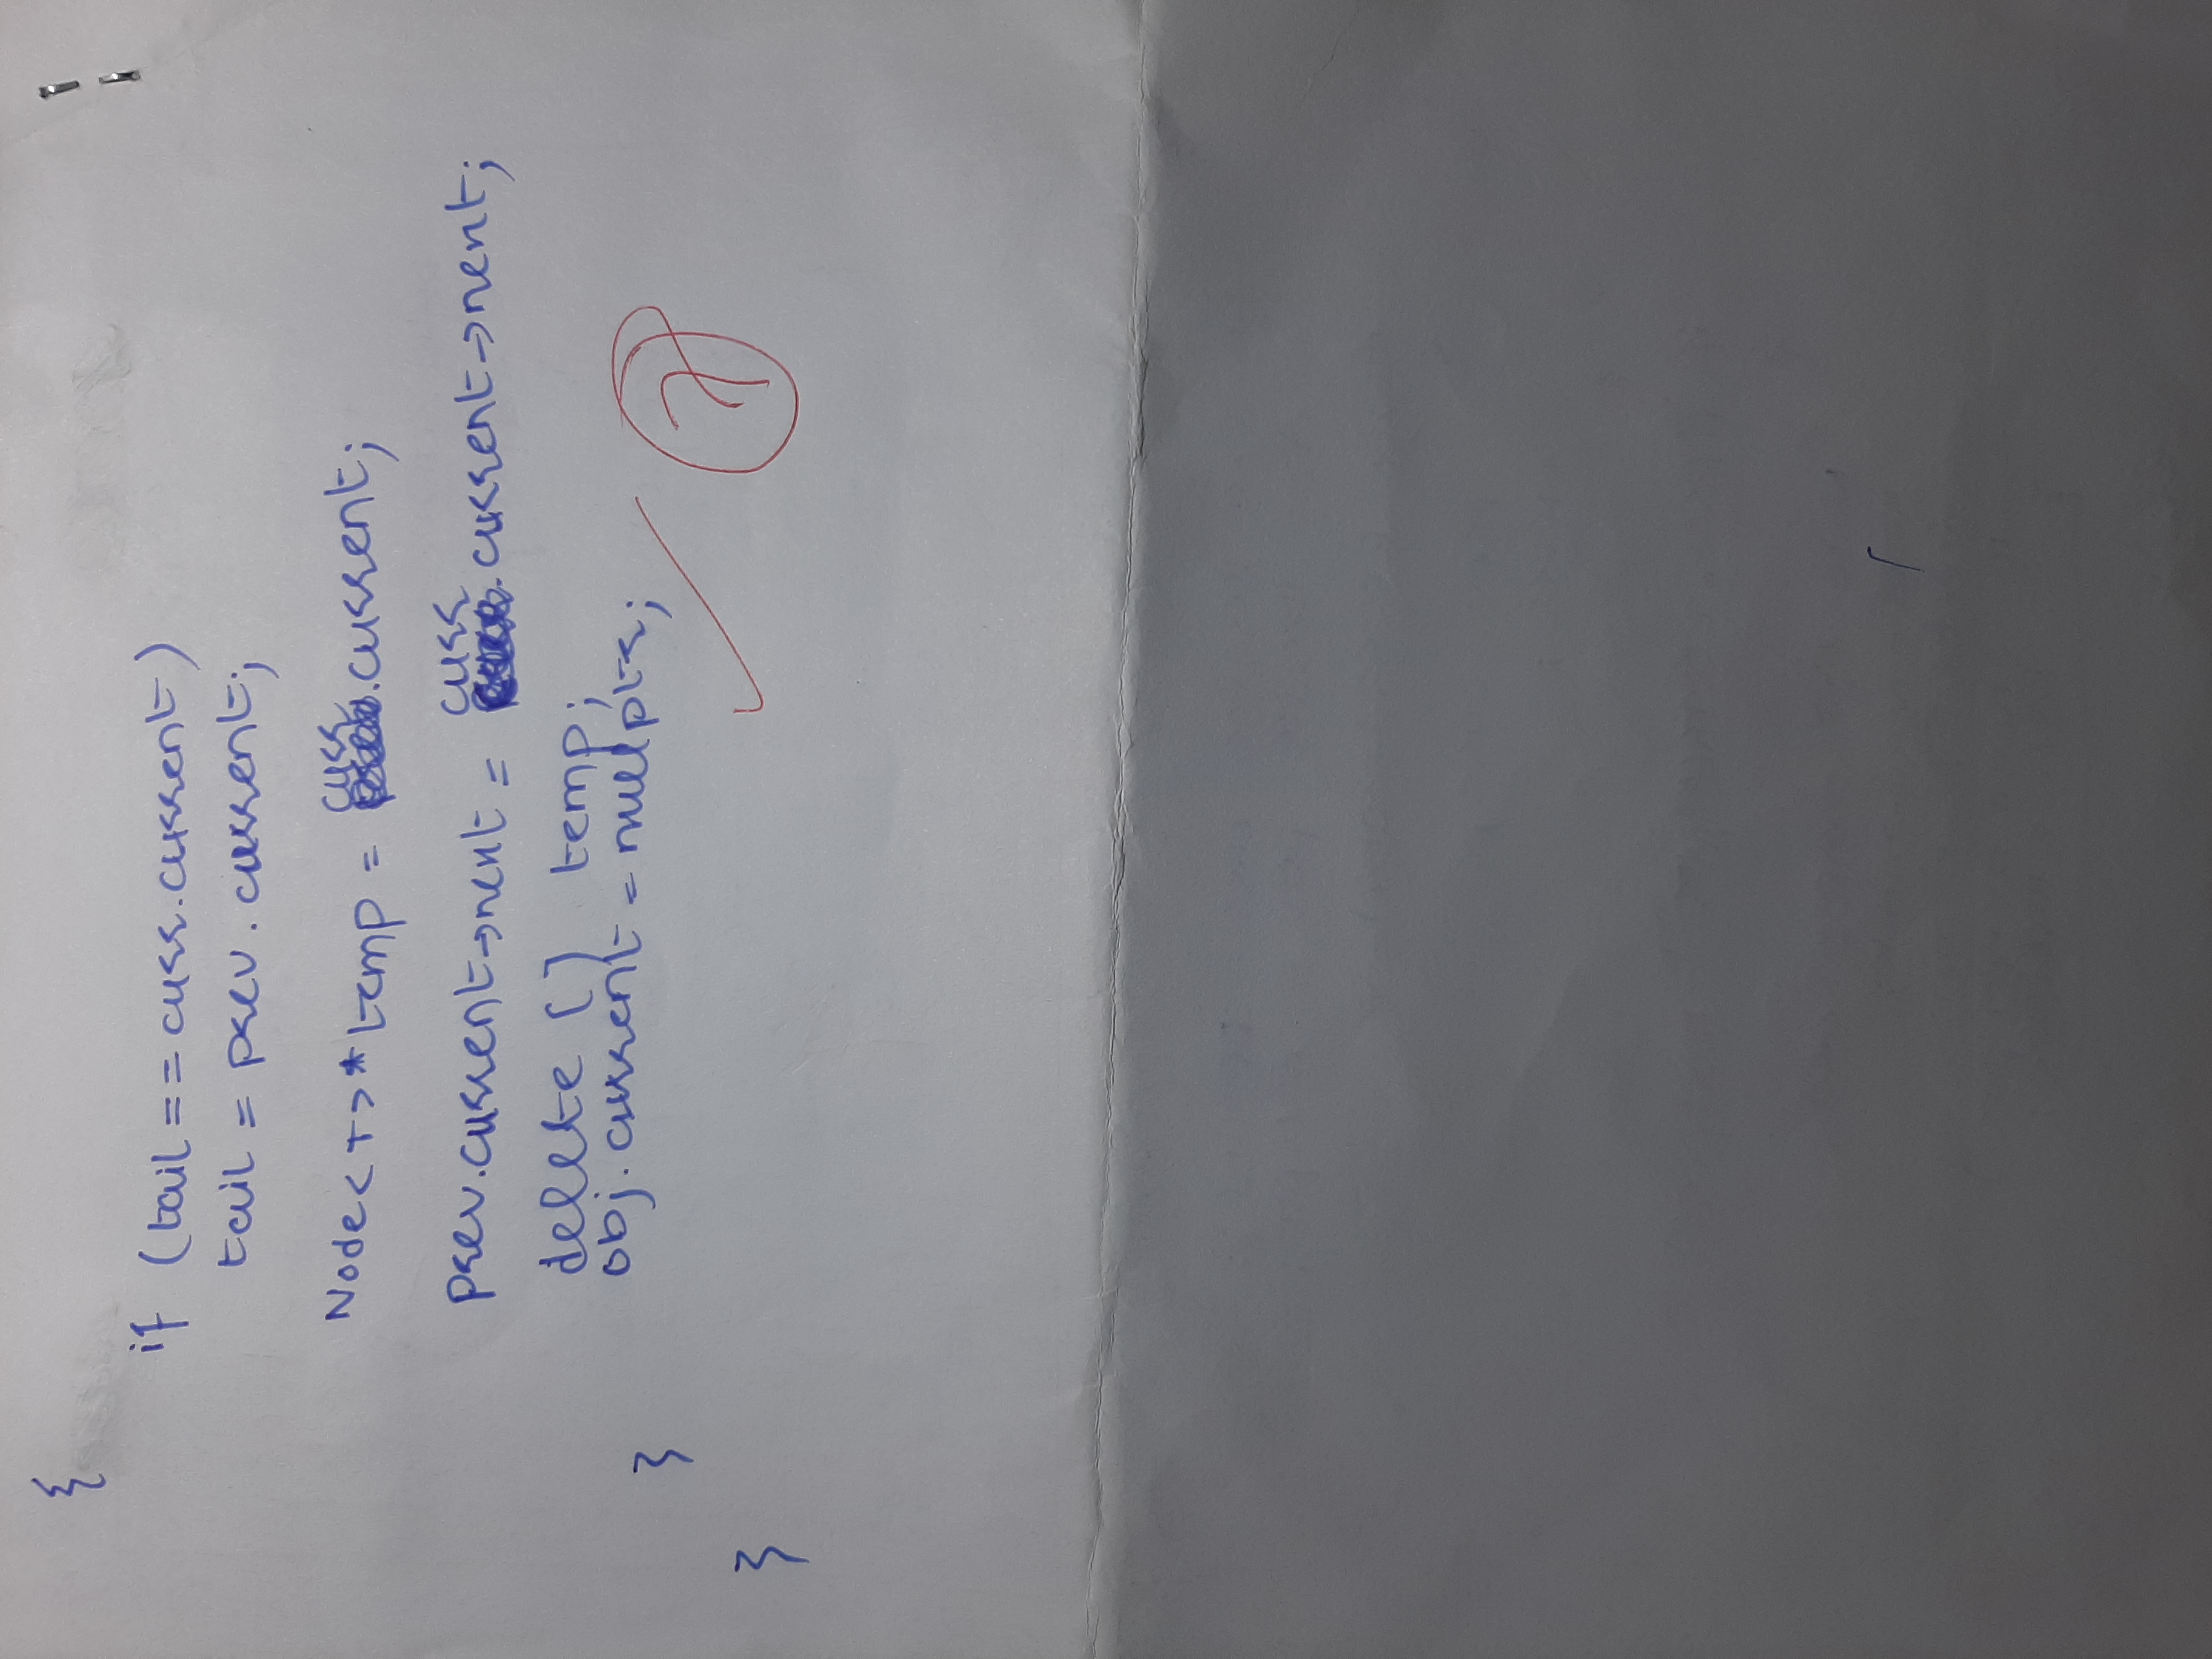 {
if (tail == curr.current)
tail = prev.current;
Node<T>* temp = curr.current;
prev.current->next = curr.current->next;
delete [] temp;
obj.current = nullptr;
}
7
}